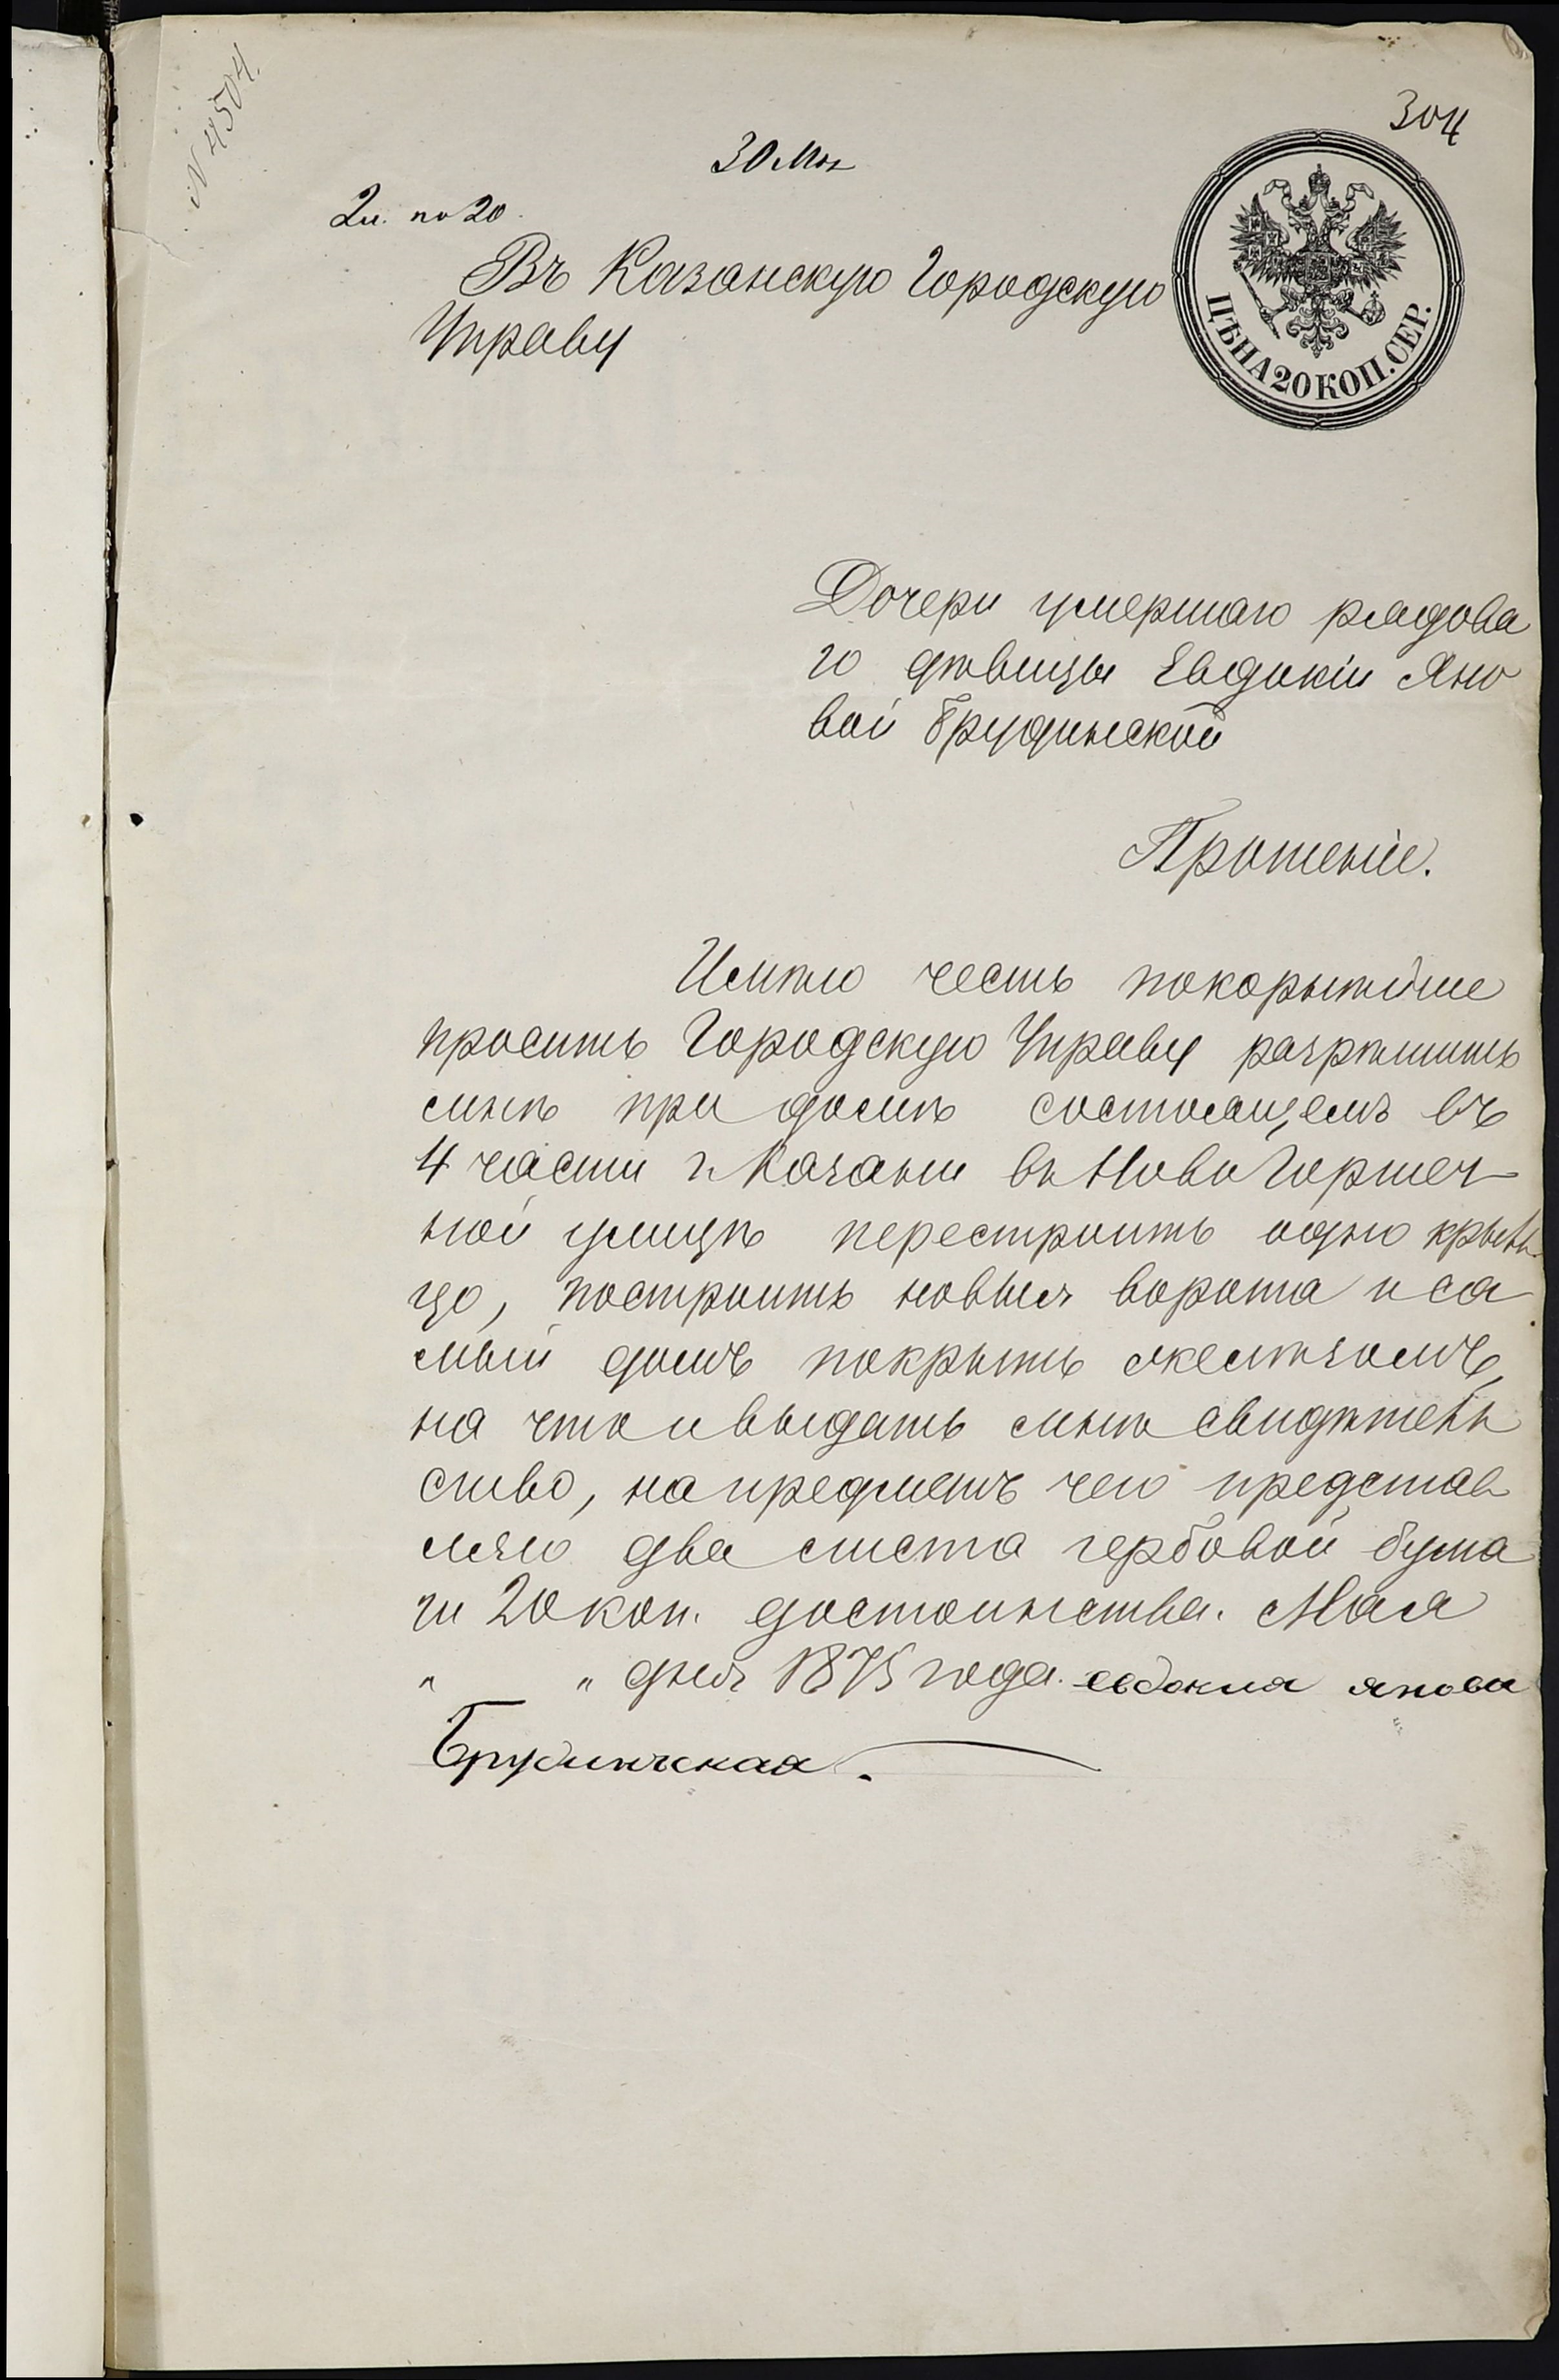 № 4504.
304
30 Мая
2 л. по 20.
Въ Казанскую Городскую
Управу
ЦѢНА 20 КОП. СЕР.
Дочери умершаго рядова
го дѣвицы Евдокіи Яно
вой Брудинской
Прошеніе.
Имѣю честь покорнѣйше
просить Городскую Управу разрѣшить
мнѣ при домѣ состоящемъ въ
4 части г. Казани въ Ново Горшеч
ной улицѣ перестроить одно крыль
цо, построить новыя ворота и са
мый домъ покрыть желѣзомъ,
на что и выдать мнѣ свидѣтель
ство, на предметъ чего представ
ляю два листа гербовой бума
ги 20 коп. достоинства. Мая
" " дня 1875 года. евдокия янова
Брудинская.